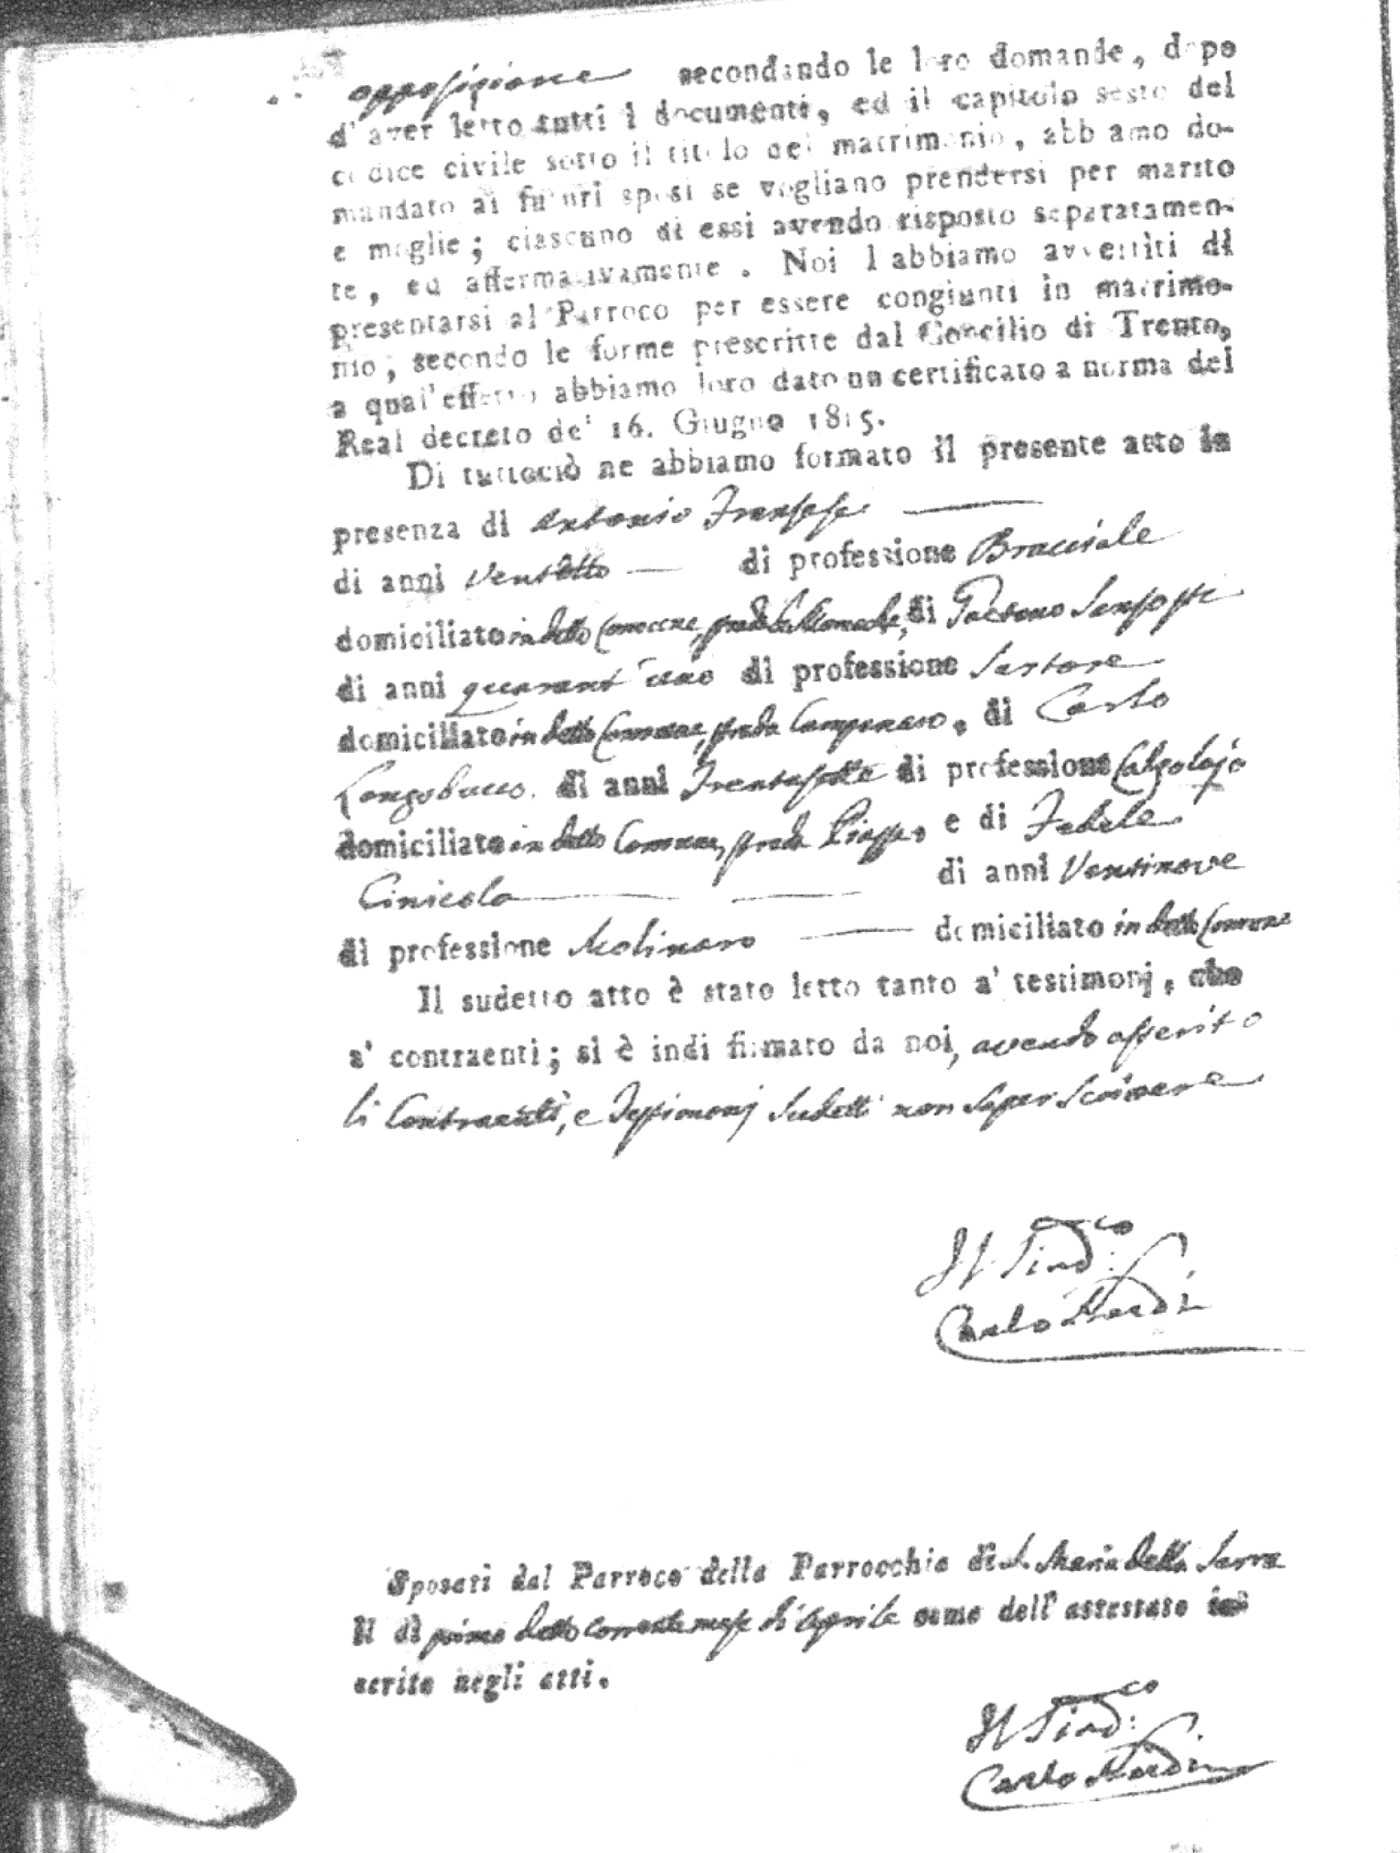 opposizione secondando le loro domande, dopo
d'aver letto tutti i documenti, ed il capitolo sesto del
codice civile sotto il titolo del matrimonio, abbiamo do-
mandato ai futuri sposi se vogliano prendersi per marito
e moglie; ciascuno di essi avendo risposto separatamen-
te, ed affermativamente. Noi l abbiamo avvertiti di
presentarsi al Parroco per essere congiunti in matrimo-
nio; secondo le forme prescritte dal Concilio di Trento,
a qual'effetto abbiamo loro dato un certificato a norma del
Real decreto de' 16. Giugno 1815.
Di tuttociò ne abbiamo formato il presente atto in
presenza di Antonio
di anni Ventotto di professione Bracciale
domiciliato in detto Comune, strada di Gaetano
di anni quarant'uno di professione Sartore
domiciliato in detto Comune, strada Campanaro, di Carlo
Longobucco. di anni Trentasette di professione Calzolajo
domiciliato in detto Comune, strada Piazza, e di Fedele
Cinicola di anni Ventinove
di professione Molinaro domiciliato in detto Comune
Il sudetto atto è stato letto tanto a' testimonj, che
a' contraenti; si è indi firmato da noi, avendo asserito
li Contraenti, e Testimonj sudetti non saper scrivere
Il Sind:co
Carlo
Sposati dal Parroco della Parrocchia di S. Maria della Serra
Il dì primo detto corrente mese di Aprile come dell'attestato in-
serito negli atti.
Il Sind:co
Carlo